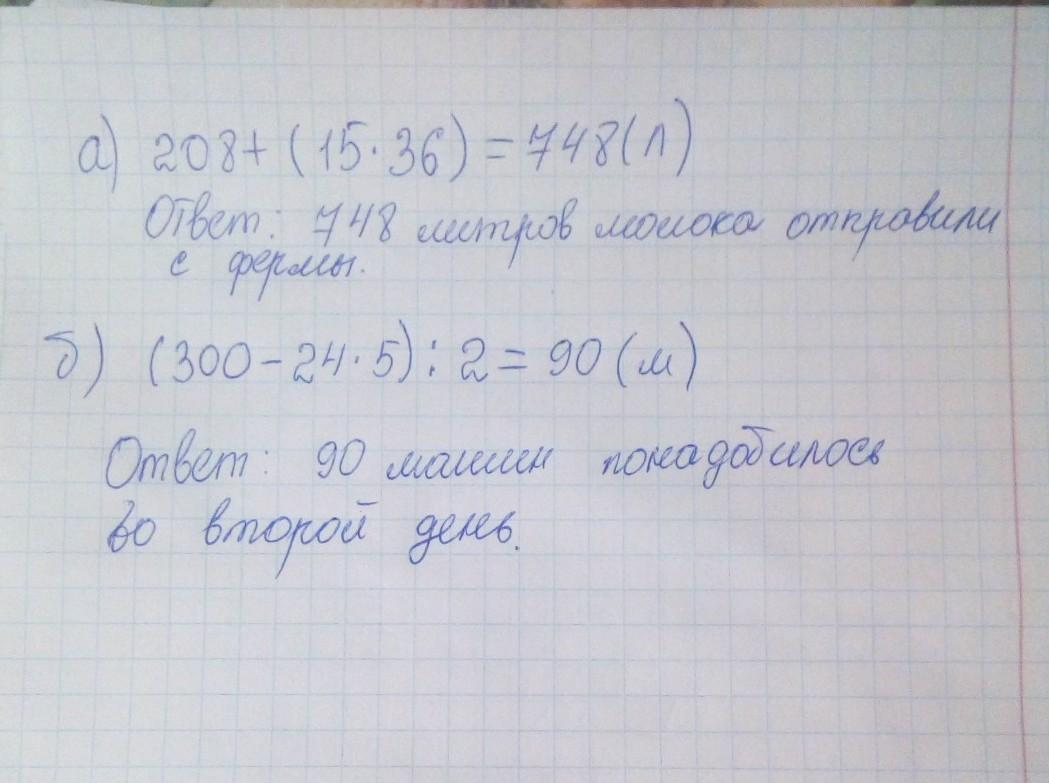 а) 208+(15·36)=748(л)
Ответ: 748 литров молока отправили
с фермы.
б) (300-24·5):2=90(м)
Ответ: 90 машин понадобилось
во второй день.